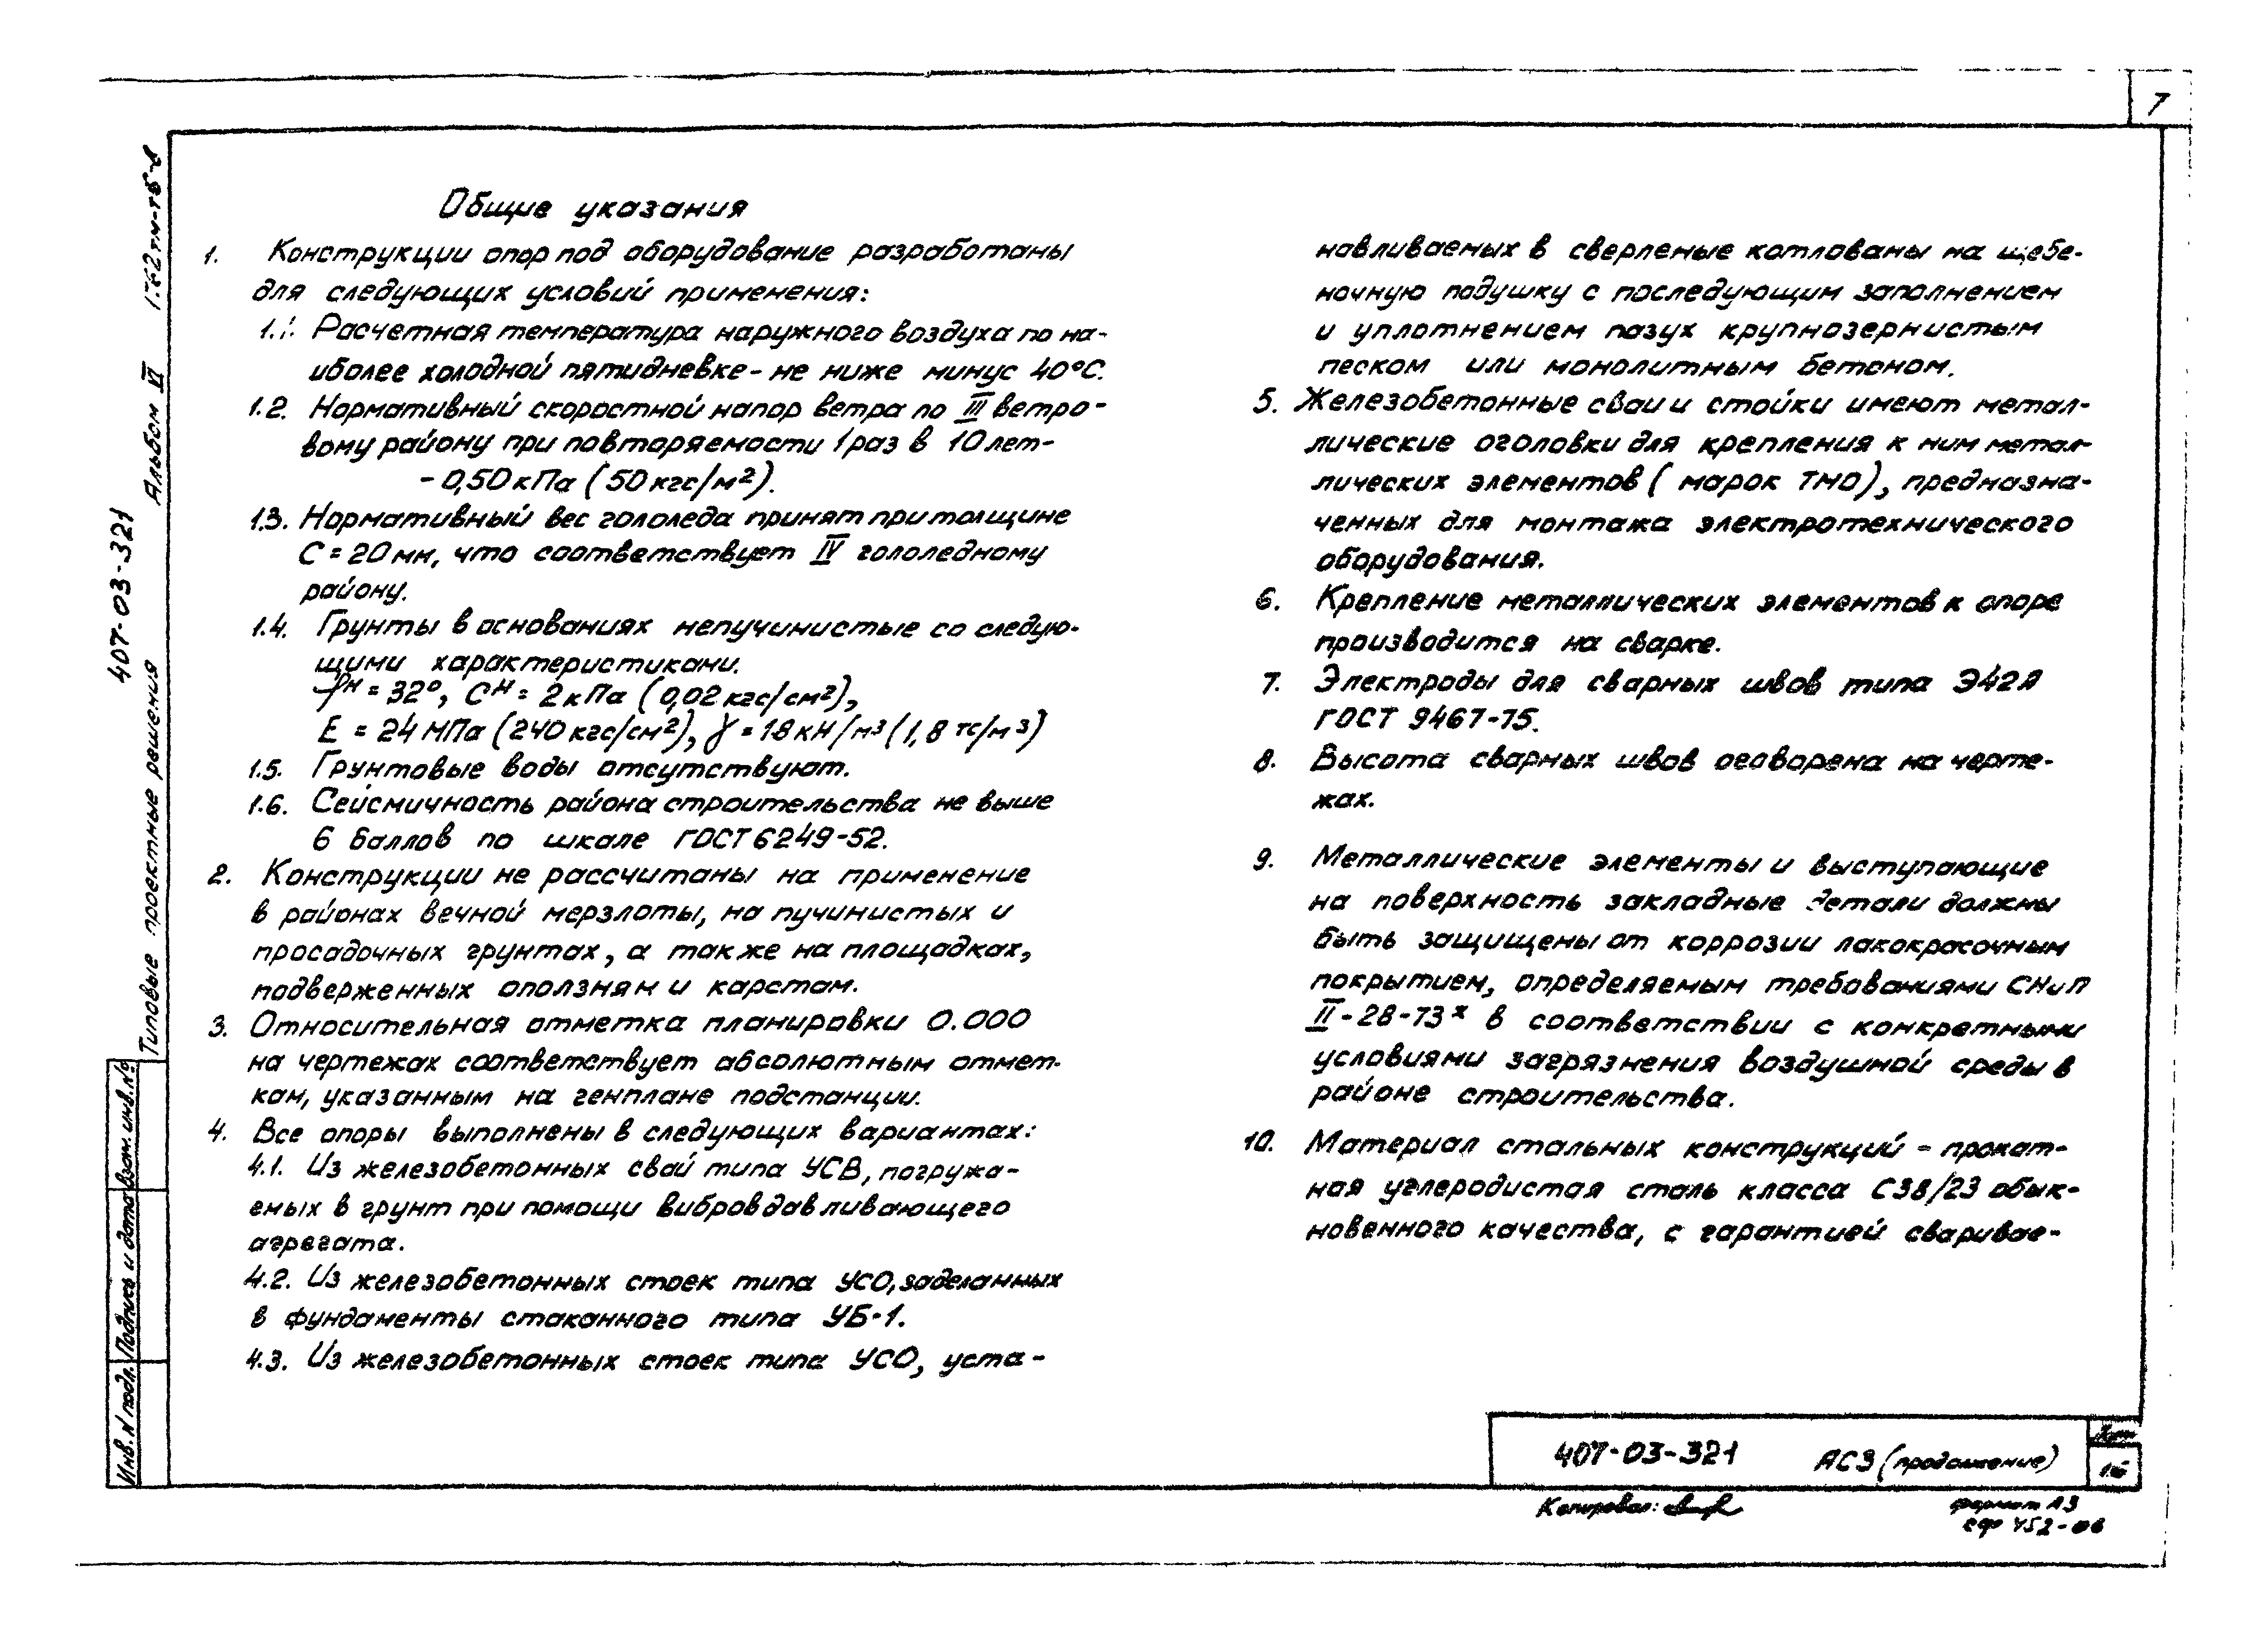 7
Общие указания
1. Конструкции опор под оборудование разработаны
для следующих условий применения:
1.1. Расчетная температура наружного воздуха по на-
иболее холодной пятидневке - не ниже минус 40°С.
1.2. Нормативный скоростной напор ветра по III ветро-
вому району при повторяемости 1 раз в 10 лет-
- 0,50 кПа (50 кгс/м²).
1.3. Нормативный вес гололеда принят при толщине
С = 20 мм, что соответствует IV гололедному
району.
1.4. Грунты в основаниях непучинистые со следую-
щими характеристиками.
φᴴ = 32°, Сᴴ = 2 кПа (0,02 кгс/см²),
Е = 24 МПа (240 кгс/см²), γ = 18 кН/м³ (1,8 тс/м³)
1.5. Грунтовые воды отсутствуют.
1.6. Сейсмичность района строительства не выше
6 баллов по шкале ГОСТ 6249-52.
2. Конструкции не рассчитаны на применение
в районах вечной мерзлоты, на пучинистых и
просадочных грунтах, а также на площадках,
подверженных оползням и карстам.
3. Относительная отметка планировки 0.000
на чертежах соответствует абсолютным отмет-
кам, указанным на генплане подстанции.
4. Все опоры выполнены в следующих вариантах:
4.1. Из железобетонных свай типа УСВ, погружа-
емых в грунт при помощи вибровдавливающего
агрегата.
4.2. Из железобетонных стоек типа УСО, заделанных
в фундаменты стаканного типа УБ-1.
4.3. Из железобетонных стоек типа УСО, уста-
навливаемых в сверленые котлованы на щебе-
ночную подушку с последующим заполнением
и уплотнением пазух крупнозернистым
песком или монолитным бетоном.
5. Железобетонные сваи и стойки имеют метал-
лические оголовки для крепления к ним метал-
лических элементов (марок ТМО), предназна-
ченных для монтажа электротехнического
оборудования.
6. Крепление металлических элементов к опоре
производится на сварке.
7. Электроды для сварных швов типа Э42А
ГОСТ 9467-75.
8. Высота сварных швов оговорена на черте-
жах.
9. Металлические элементы и выступающие
на поверхность закладные детали должны
быть защищены от коррозии лакокрасочным
покрытием, определяемым требованиями СНиП
II-28-73ˣ в соответствии с конкретными
условиями загрязнения воздушной среды в
районе строительства.
10. Материал стальных конструкций - прокат-
ная углеродистая сталь класса С38/23 обык-
новенного качества, с гарантией сваривае-
407-03-321
Типовые проектные решения Альбом VI
Инв. N подл. Подпись и дата Взам. инв. №
407-03-321 АС3 (продолжение)
Лист
1.5
Копировал:
формат А3